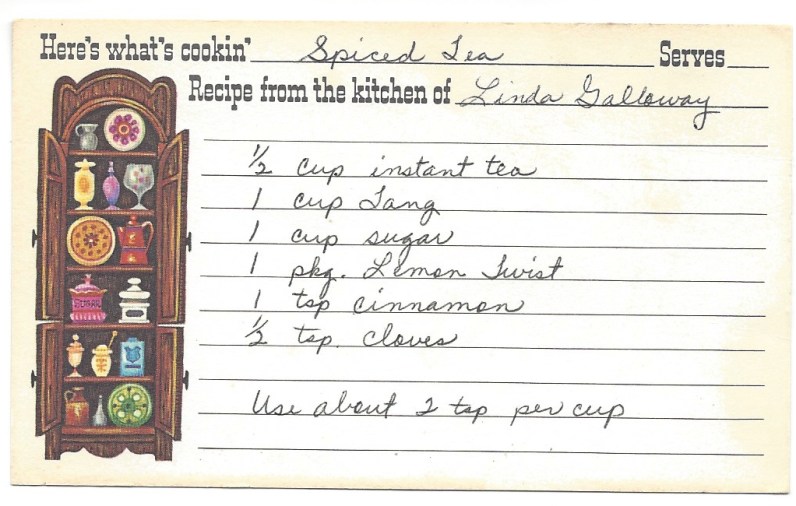 Here's what's cookin' Spiced Tea Serves
Recipe from the kitchen of Linda Galloway
1/2 cup instant tea
1 cup Tang
1 cup sugar
1 pkg. Lemon Twist
1 tsp cinnamon
1/2 tsp. cloves
Use about 2 tsp per cup
SUGAR